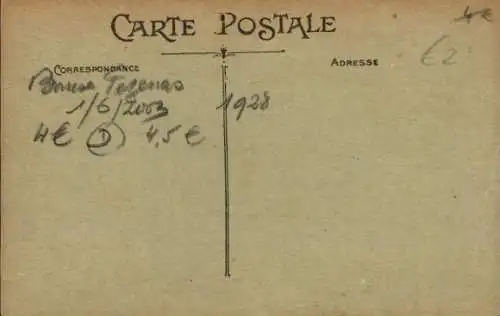 CARTE POSTALE
4€
CORRESPONDANCE
ADRESSE
€2
Bourse Pezenas
1/6/2003
1928
4€ D 4,5€